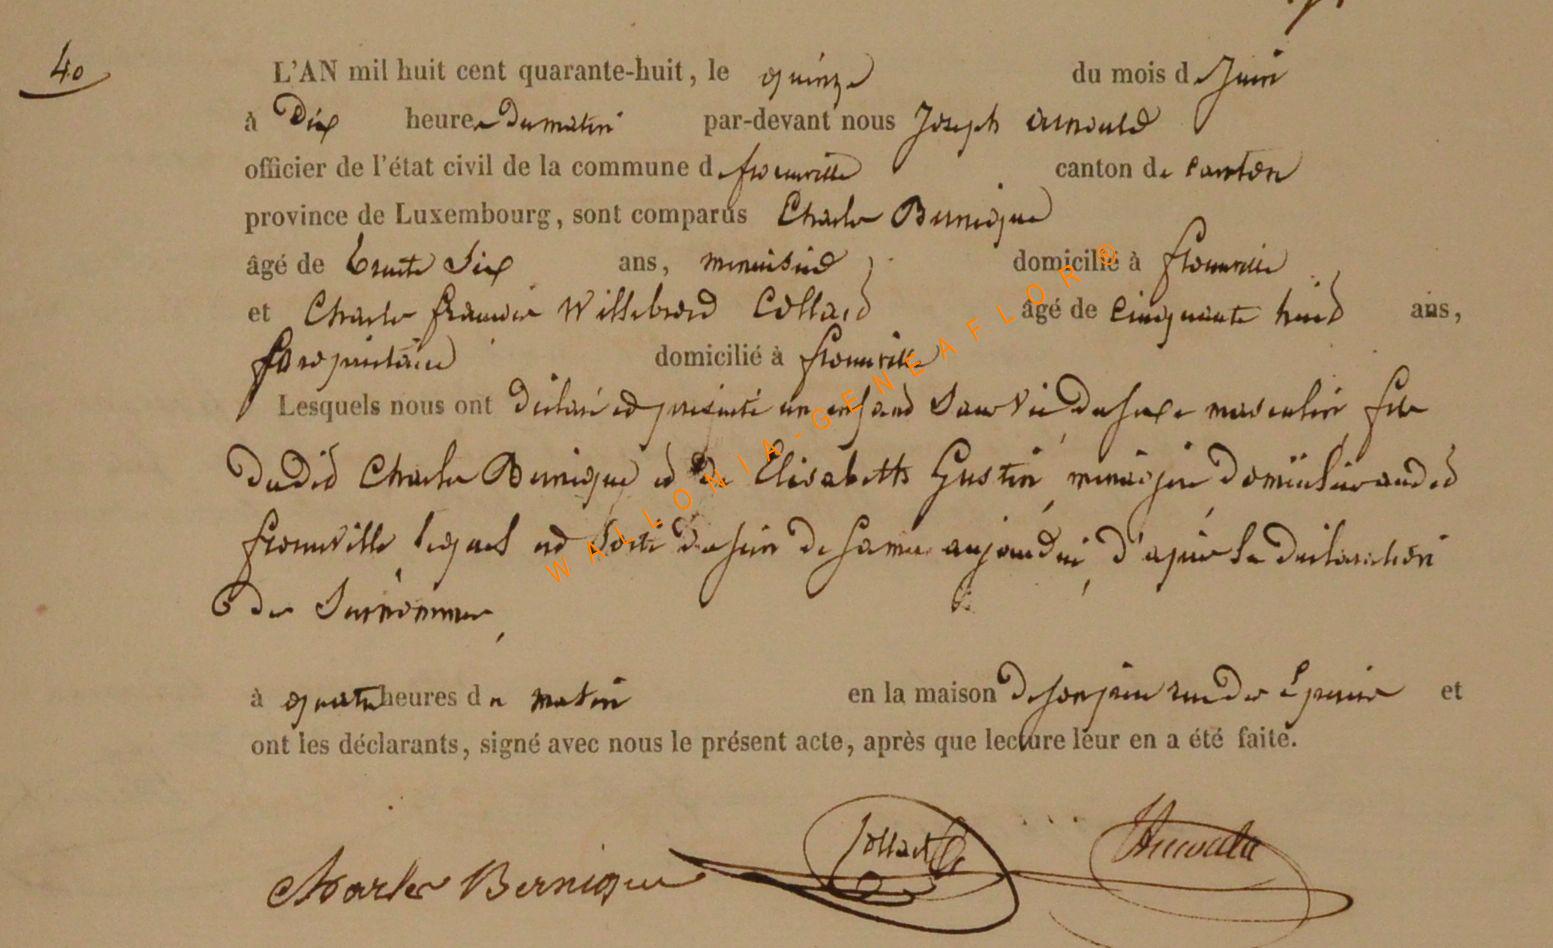 40
L'AN mil huit cent quarante-huit, le quinze du mois de Juin
à Dix heures Du matin par-devant nous Joseph Arnould
officier de l'état civil de la commune de florenville canton de
province de Luxembourg, sont comparus Charles Bernique
âgé de trente Six ans, menuisier domicilié à florenville
et Charles françois Willebrord Collard âgé de cinquante huit ans,
propriétaire domicilié à florenville
Lesquels nous ont déclaré et présenté un enfant Sans Vie Du sexe masculin fils
Du dit Charles Bernique et de Elisabeth Gustin, menagère Domiciliée audit
florenville lequel est Sorti Du sein De sa mère aujourdui, D'après la Declaration
Des Surnommés,
à quatre heures du matin en la maison De son père rue Des Epines et
ont les déclarants, signé avec nous le présent acte, après que lecture leur en a été faite.
Charles Bernique Collard Arnould
WALLONIA-GENEAFLOR©